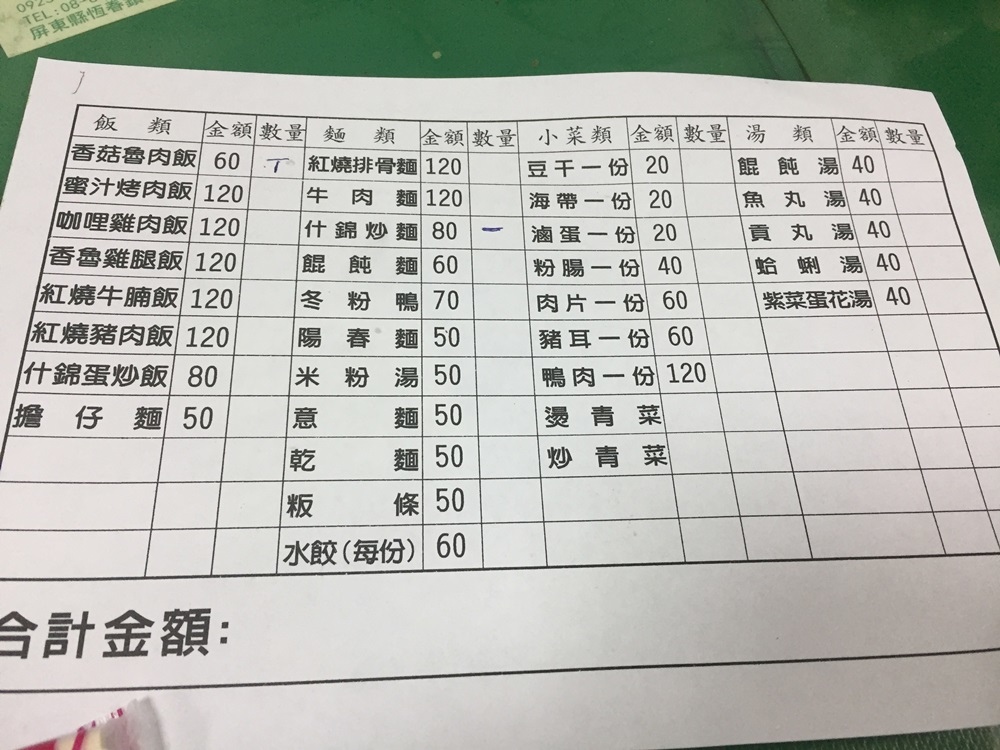 0925
TEL:08-8
屏東縣恆春鎮
飯類 金額 數量 麵類 金額 數量 小菜類 金額 數量 湯類 金額 數量
香菇魯肉飯 60 紅燒排骨麵 120 豆干一份 20 餛飩湯 40
蜜汁烤肉飯 120 牛肉麵 120 海帶一份 20 魚丸湯 40
咖哩雞肉飯 120 什錦炒麵 80 一 滷蛋一份 20 貢丸湯 40
香魯雞腿飯 120 餛飩麵 60 粉腸一份 40 蛤蜊湯 40
紅燒牛腩飯 120 冬粉鴨 70 肉片一份 60 紫菜蛋花湯 40
紅燒豬肉飯 120 陽春麵 50 豬耳一份 60
什錦蛋炒飯 80 米粉湯 50 鴨肉一份 120
擔仔麵 50 意麵 50 燙青菜
乾麵 50 炒青菜
粄條 50
水餃(每份) 60
合計金額: